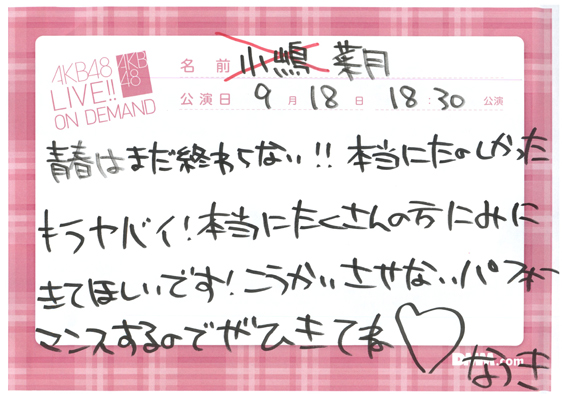 AKB48
LIVE!!
ON DEMAND
AKB
48
名前 小嶋 菜月
公演日 9月18日 18:30 公演
青春はまだ終わらない!! 本当にたのしかった
キラヤバイ!本当にたくさんの方にみに
きてほしいです!こうかいさせないパフォー
マンスするのでぜひきてね♡
DMM.com
なつき